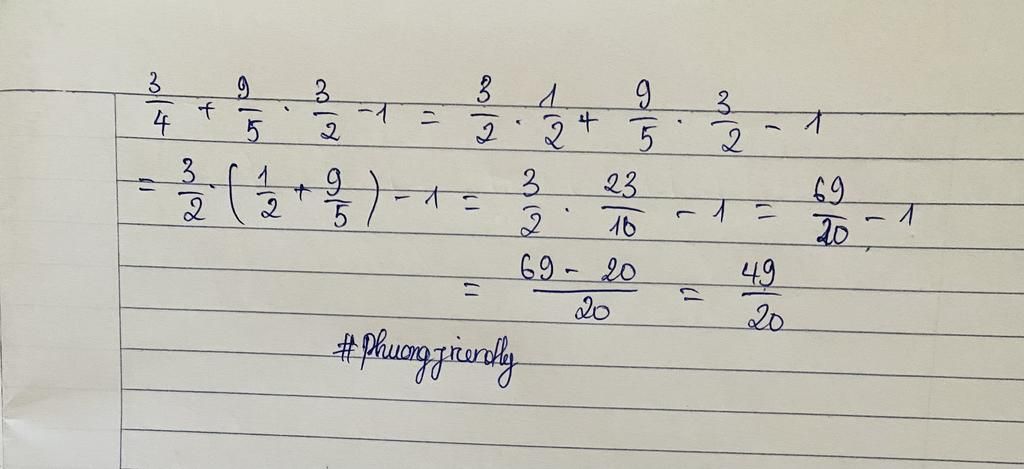 3/4 + 9/5 · 3/2 - 1 = 3/2 · 1/2 + 9/5 · 3/2 - 1
= 3/2 · (1/2 + 9/5) - 1 = 3/2 · 23/10 - 1 = 69/20 - 1
= (69 - 20)/20 = 49/20
#phuongfriendly